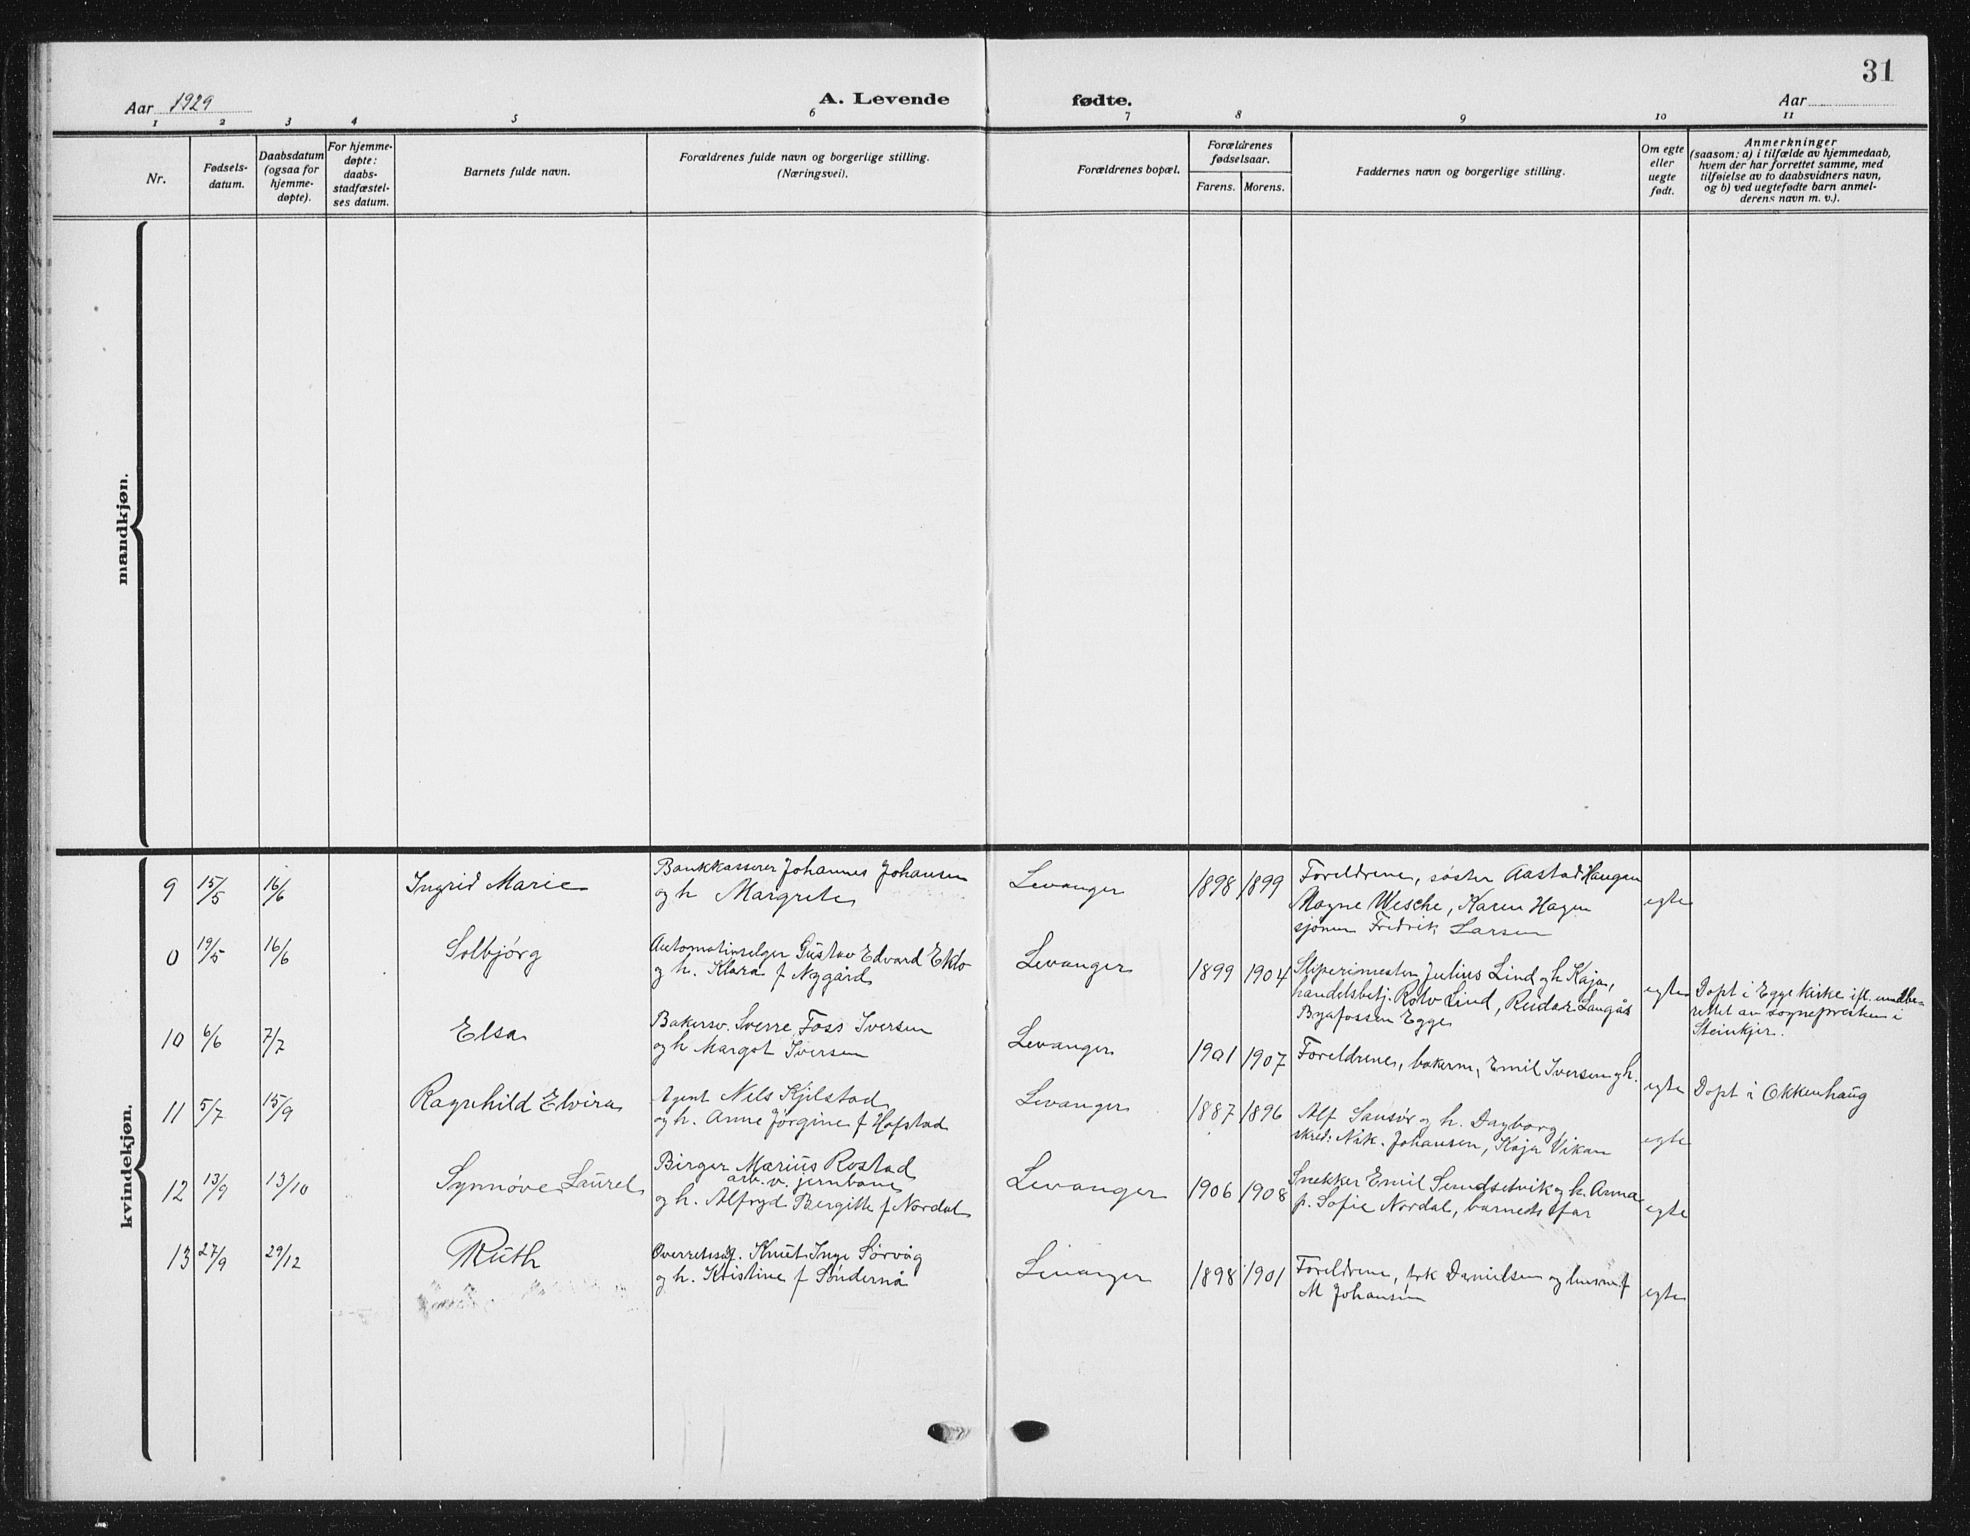 31
Aar 1929
A. Levende fødte.
Aar
1 2 3 4 5 6 7 8 9 10 11
Nr.
Fødsels-
datum.
Daabsdatum
(ogsaa for
hjemme-
døpte).
For hjemme-
døpte:
daabs-
stadfæstel-
ses datum.
Barnets fulde navn.
Forældrenes fulde navn og borgerlige stilling.
(Næringsvei).
Forældrenes bopæl.
Forældrenes
fødselsaar.
Farens. Morens.
Faddernes navn og borgerlige stilling.
Om egte
eller
uegte
født.
Anmerkninger
(saasom: a) i tilfælde av hjemmedaab,
hvem der har forrettet samme, med
tilføielse av to daabsvidners navn,
og b) ved uegtefødte barn anmel-
derens navn m. v.).
mandkjøn.
kvindekjøn.
9 15/5 16/6 Ingrid Marie
Bankkasserer Johannes Johansen
og h Margrete
Levanger 1898 1899
Foreldrene, søster Aastad Haugen
Magne Wesche, Karen Hagen
Fredrik Larsen
egte
0 19/5 16/6 Solbjørg
Gustav Edvard Eklo
og h. Klara f Nygård
Levanger 1899 1904
Sliperimester Julius Lind og h Kaja,
handelsbetj. Rolv Lind, Reidar Langås
Byafossen Egge
egte
Døpt i Egge kirke ifl. innbe-
rettet av sognepresten i
Steinkjer.
10 6/6 7/7 Elsa
Bakersv. Sverre Foss Iversen
og h Margot Iversen
Levanger 1901 1907
Foreldrene, bakerm, Emil Iversen og h.
egte
Døpt i Okkenhaug
11 5/7 15/9 Ragnhild Elvira
Agent Nels Kjilstad
og h. Anne Jørgine f Hofstad
Levanger 1887 1896
Alf Sansør og h. Dagborg
skred. Nik. Johansen, Kaja Vikan
egte
12 13/9 13/10 Synnøve Laurel
Birger Marius Rostad
arb. v. jernbane
og h. Alfryd Bergitte f Nordal
Levanger 1906 1908
Snekker Emil Sundsetvik og h. Anna
p. Sofie Nordal, barnets far
egte
13 27/9 29/12 Ruth
Overretssf. Knut Inge Sørvåg
og h. Kristine f Søndernå
Levanger 1898 1901
Foreldrene, frk Danielsen og
M Johansen
egte